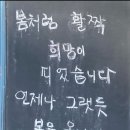 봄처럼 활짝
희망이
피었습니다
언제나 그랬듯
봄은 옵